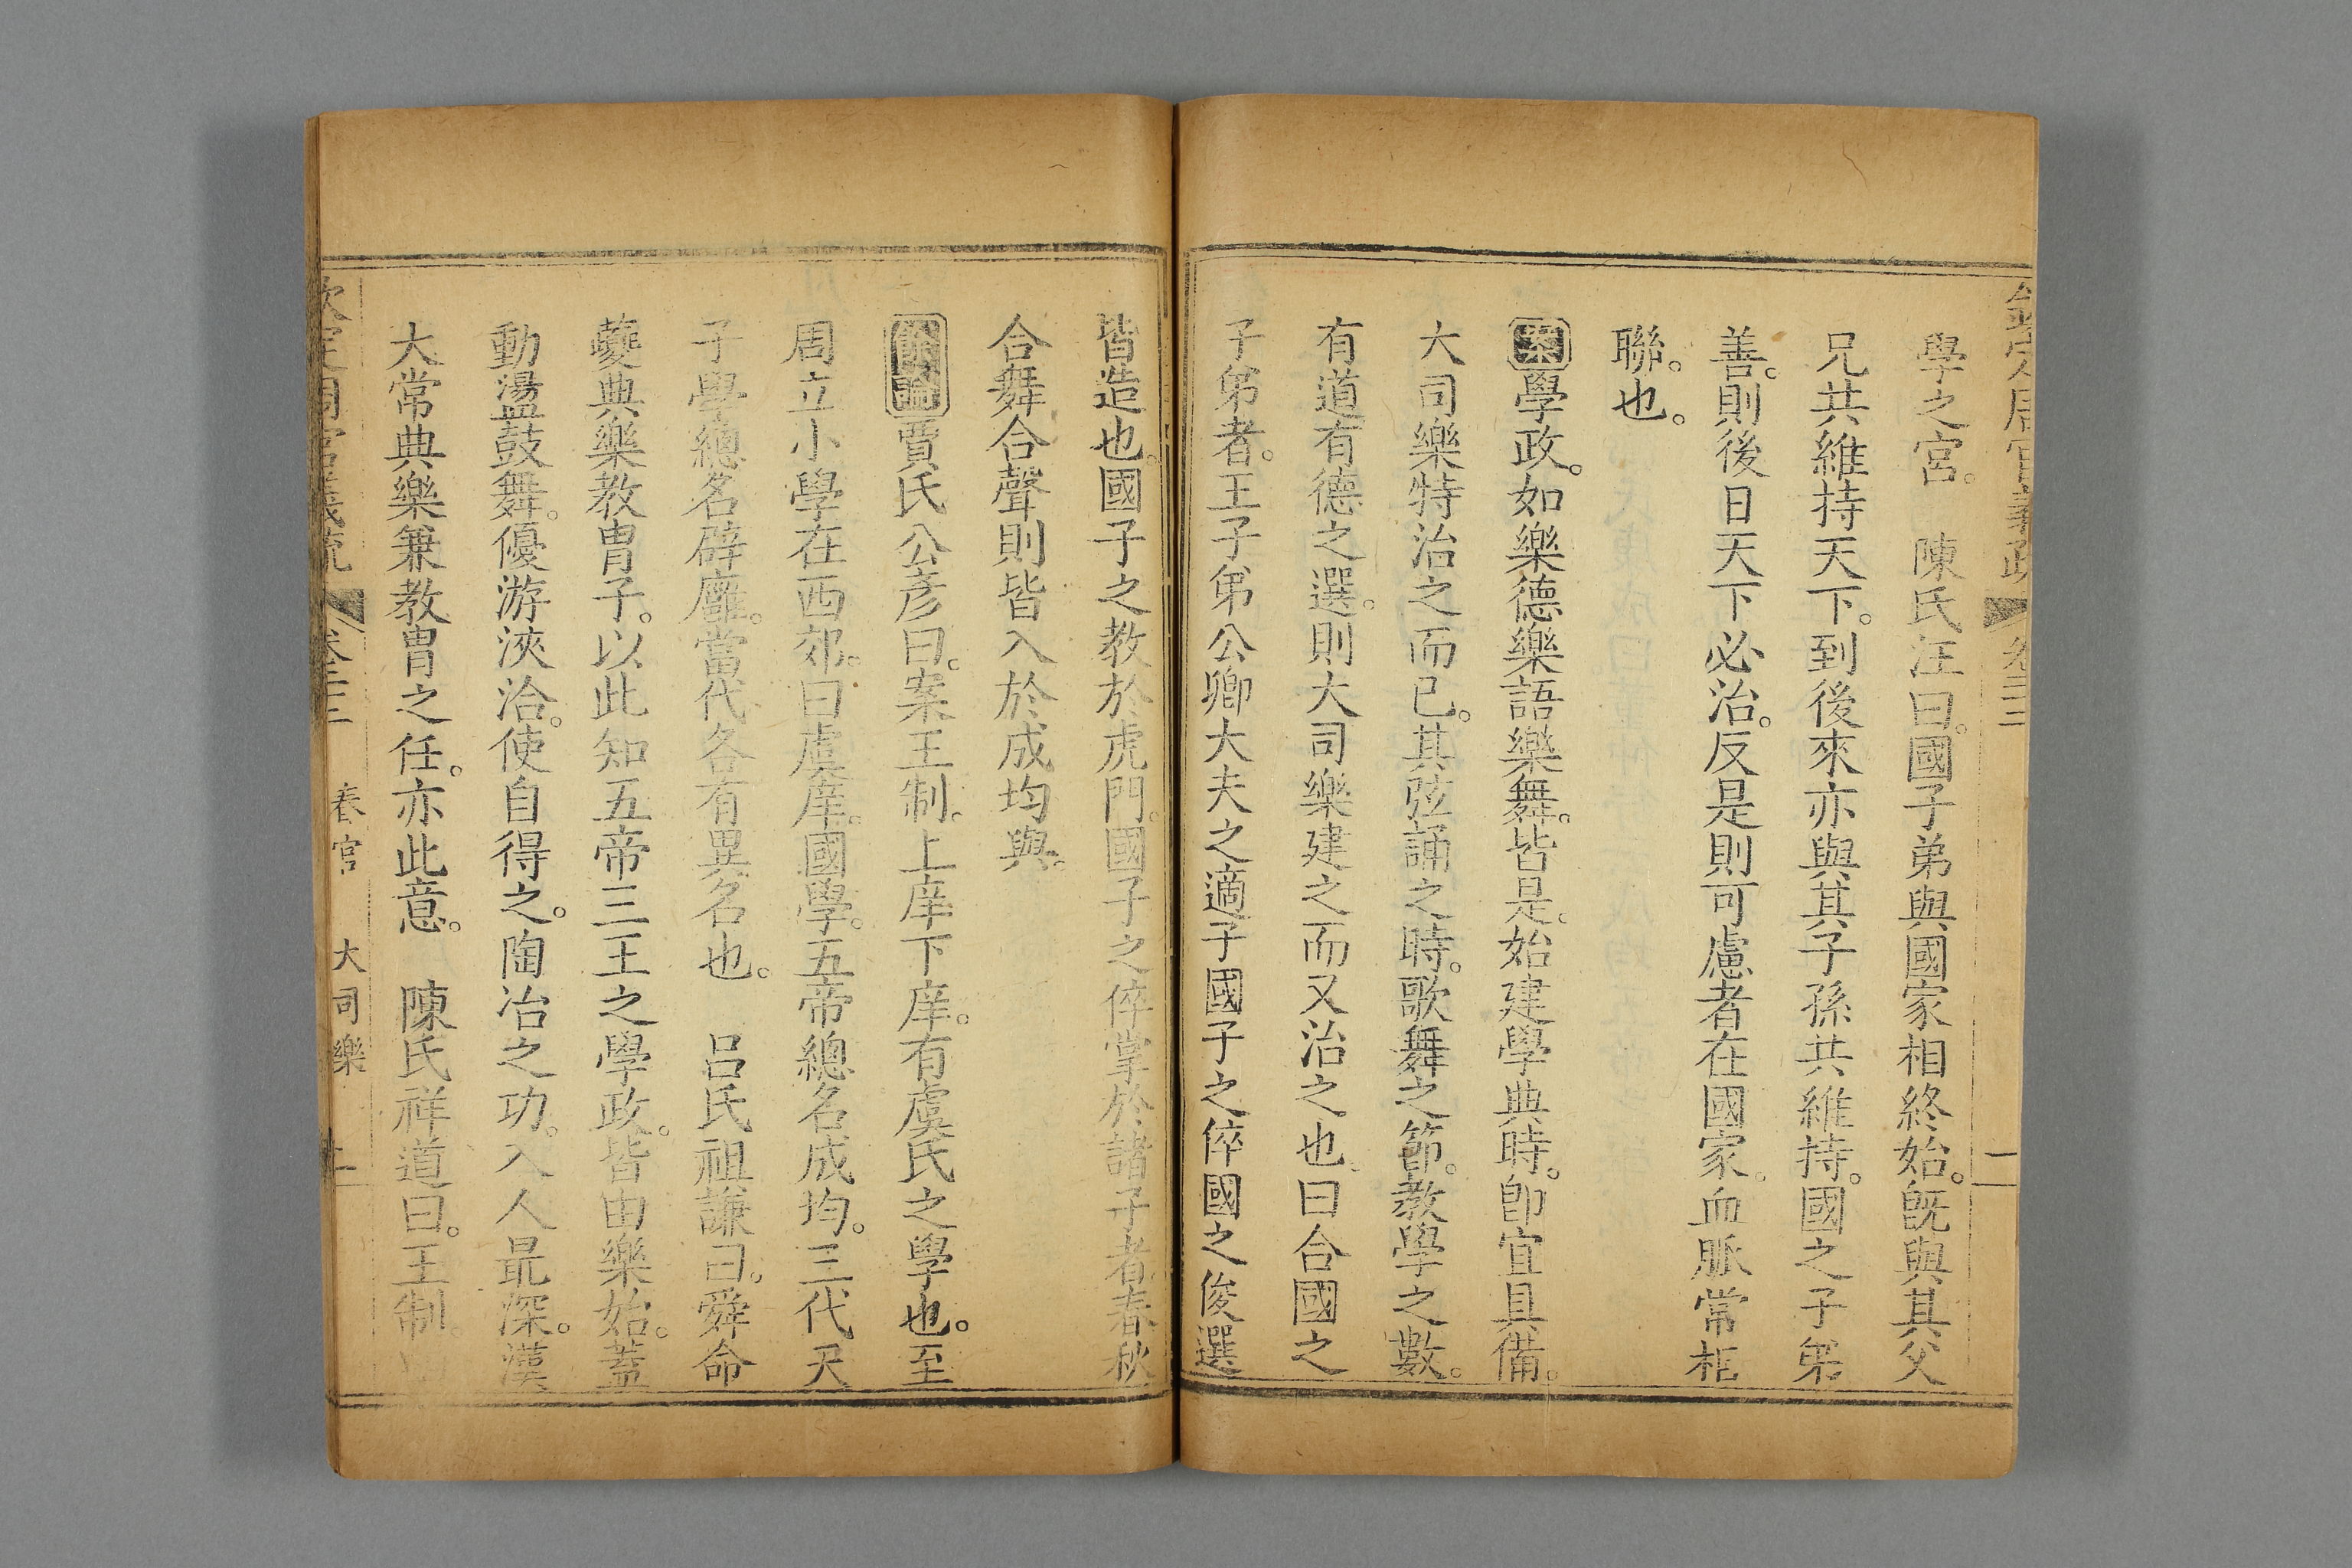 欽定周官義疏 卷二十二 二
學之宮。 陳氏汪曰。國子弟與國家相終始。旣與其父
兄共維持天下。到後來亦與其子孫共維持。國之子弟
善。則後日天下必治。反是則可慮者在國家。血脈常相
聯。也。
案學政。如樂德樂語樂舞。皆是。始建學典時。卽宜具備。
大司樂特治之而已。其弦誦之時。歌舞之節。教學之數。
有道有德之選。則大司樂建之而又治之也。曰合國之
子弟者。王子弟公卿大夫之適子國子之倅國之俊選
皆造也。國子之教於虎門。國子之倅掌於諸子者春秋
合舞合聲則皆入於成均與。
餘論賈氏公彥曰。案王制。上庠下庠。有虞氏之學也。至
周立小學在西郊。曰虞庠。國學。五帝總名成均。三代天
子學總名辟廱。當代各有異名也。 呂氏祖謙曰。舜命
夔典樂教胄子。以此知五帝三王之學政。皆由樂始。蓋
動盪鼓舞。優游浹洽。使自得之。陶冶之功。入人最深。漢
大常典樂兼教胄之任。亦此意。 陳氏祥道曰。王制。
欽定周官義疏 春官 大司樂